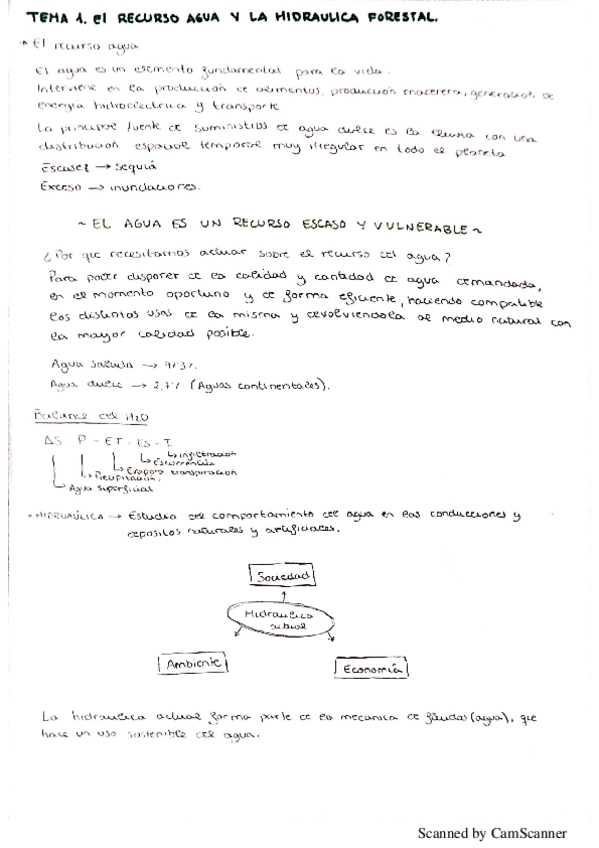 TEMA 1. El RECURSO AGUA Y LA HIDRAULICA FORESTAL.
→ El recurso agua
El agua es un elemento fundamental para la vida.
Interviene en la producción de alimentos, producción maderera, generación de
energía hidroeléctrica y transporte
La principal fuente de suministros de agua dulce es la lluvia con una
distribución espacial temporal muy irregular en todo el planeta.
Escasez → sequía
Exceso → inundaciones.
~ EL AGUA ES UN RECURSO ESCASO Y VULNERABLE ~
¿Por que necesitamos actuar sobre el recurso del agua?
Para poder disponer de la calidad y cantidad de agua demandada,
en el momento oportuno y de forma eficiente, haciendo compatible
los distintos usos de la misma y devolviendola al medio natural con
la mayor calidad posible.
Agua salada → 97'3%
Agua dulce → 2,7% (Aguas continentales).
Balance del H2O
ΔS P - ET - ES - I
Infiltración
Escorrentía
Evapotranspiración
Precipitación
Agua superficial
- HIDRAÚLICA → Estudia del comportamiento del agua en las conducciones y
depositos naturales y artificiales.
Sociedad
Hidraulica
actual
Ambiente
Economía
La hidraulica actual forma parte de la mecanica de fluidos (agua), que
hace un uso sostenible del agua.
Scanned by CamScanner